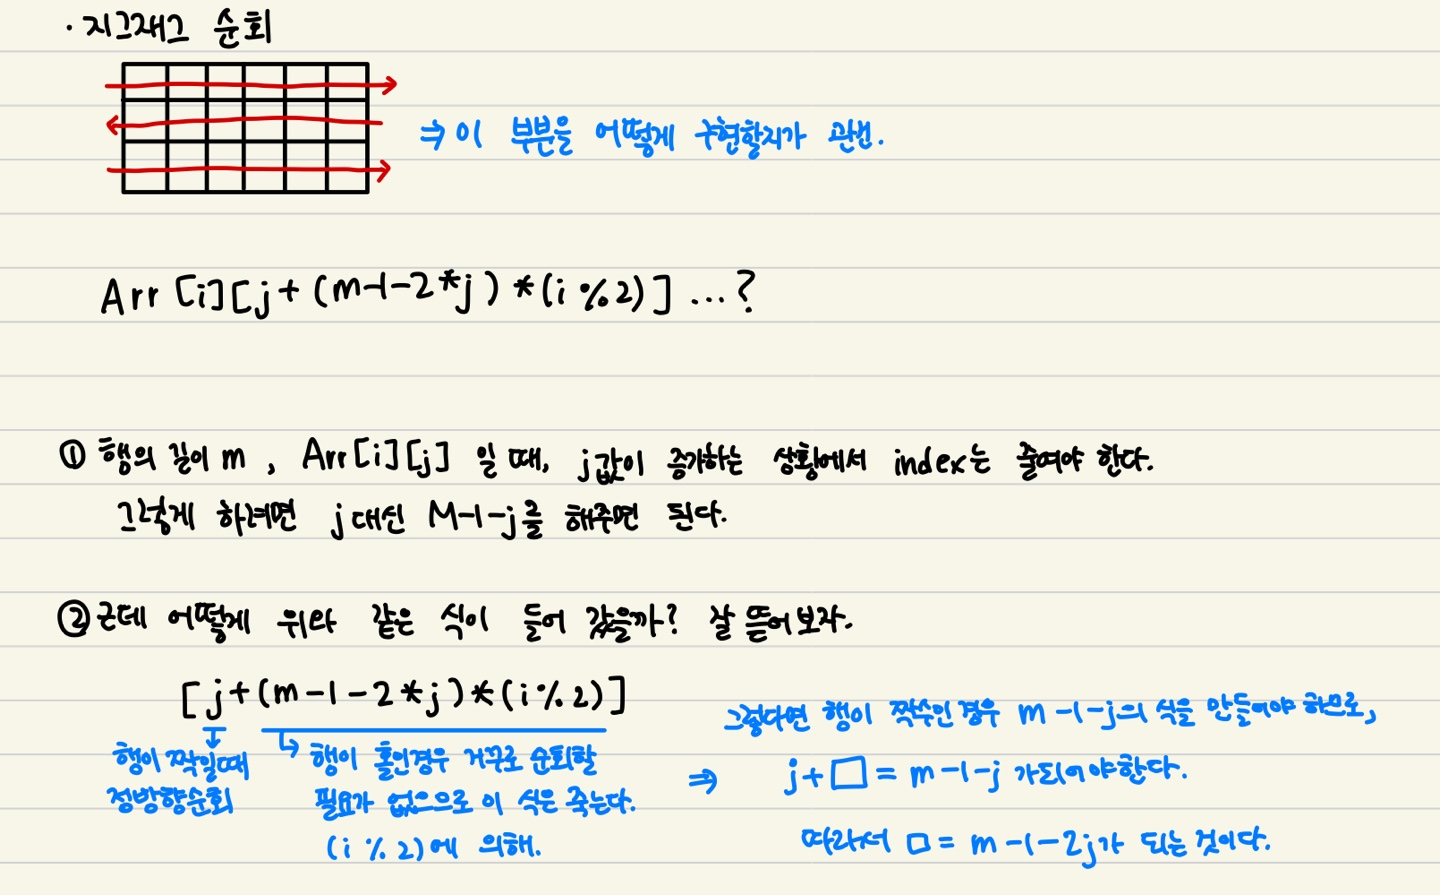 · 지그재그 순회
⇒ 이 부분을 어떻게 구현할지가 관건.
Arr [i][j + (m-1-2*j) * (i % 2)] ...?
① 행의 길이 m , Arr[i][j] 일 때, j값이 증가하는 상황에서 index는 줄여야 한다.
그렇게 하려면 j 대신 M-1-j를 해주면 된다.
② 근데 어떻게 위와 같은 식이 들어 갔을까? 잘 뜯어보자.
[j+(m-1-2*j)*(i%2)]
행이 짝일때
정방향순회
↳ 행이 홀인경우 거꾸로 순회할
필요가 없으므로 이 식은 죽는다.
(i % 2)에 의해.
그렇다면 행이 짝수인 경우 m-1-j의 식을 만들어야 하므로,
⇒ j+□ = m-1-j 가 되어야한다.
따라서 □ = m-1-2j가 되는 것이다.